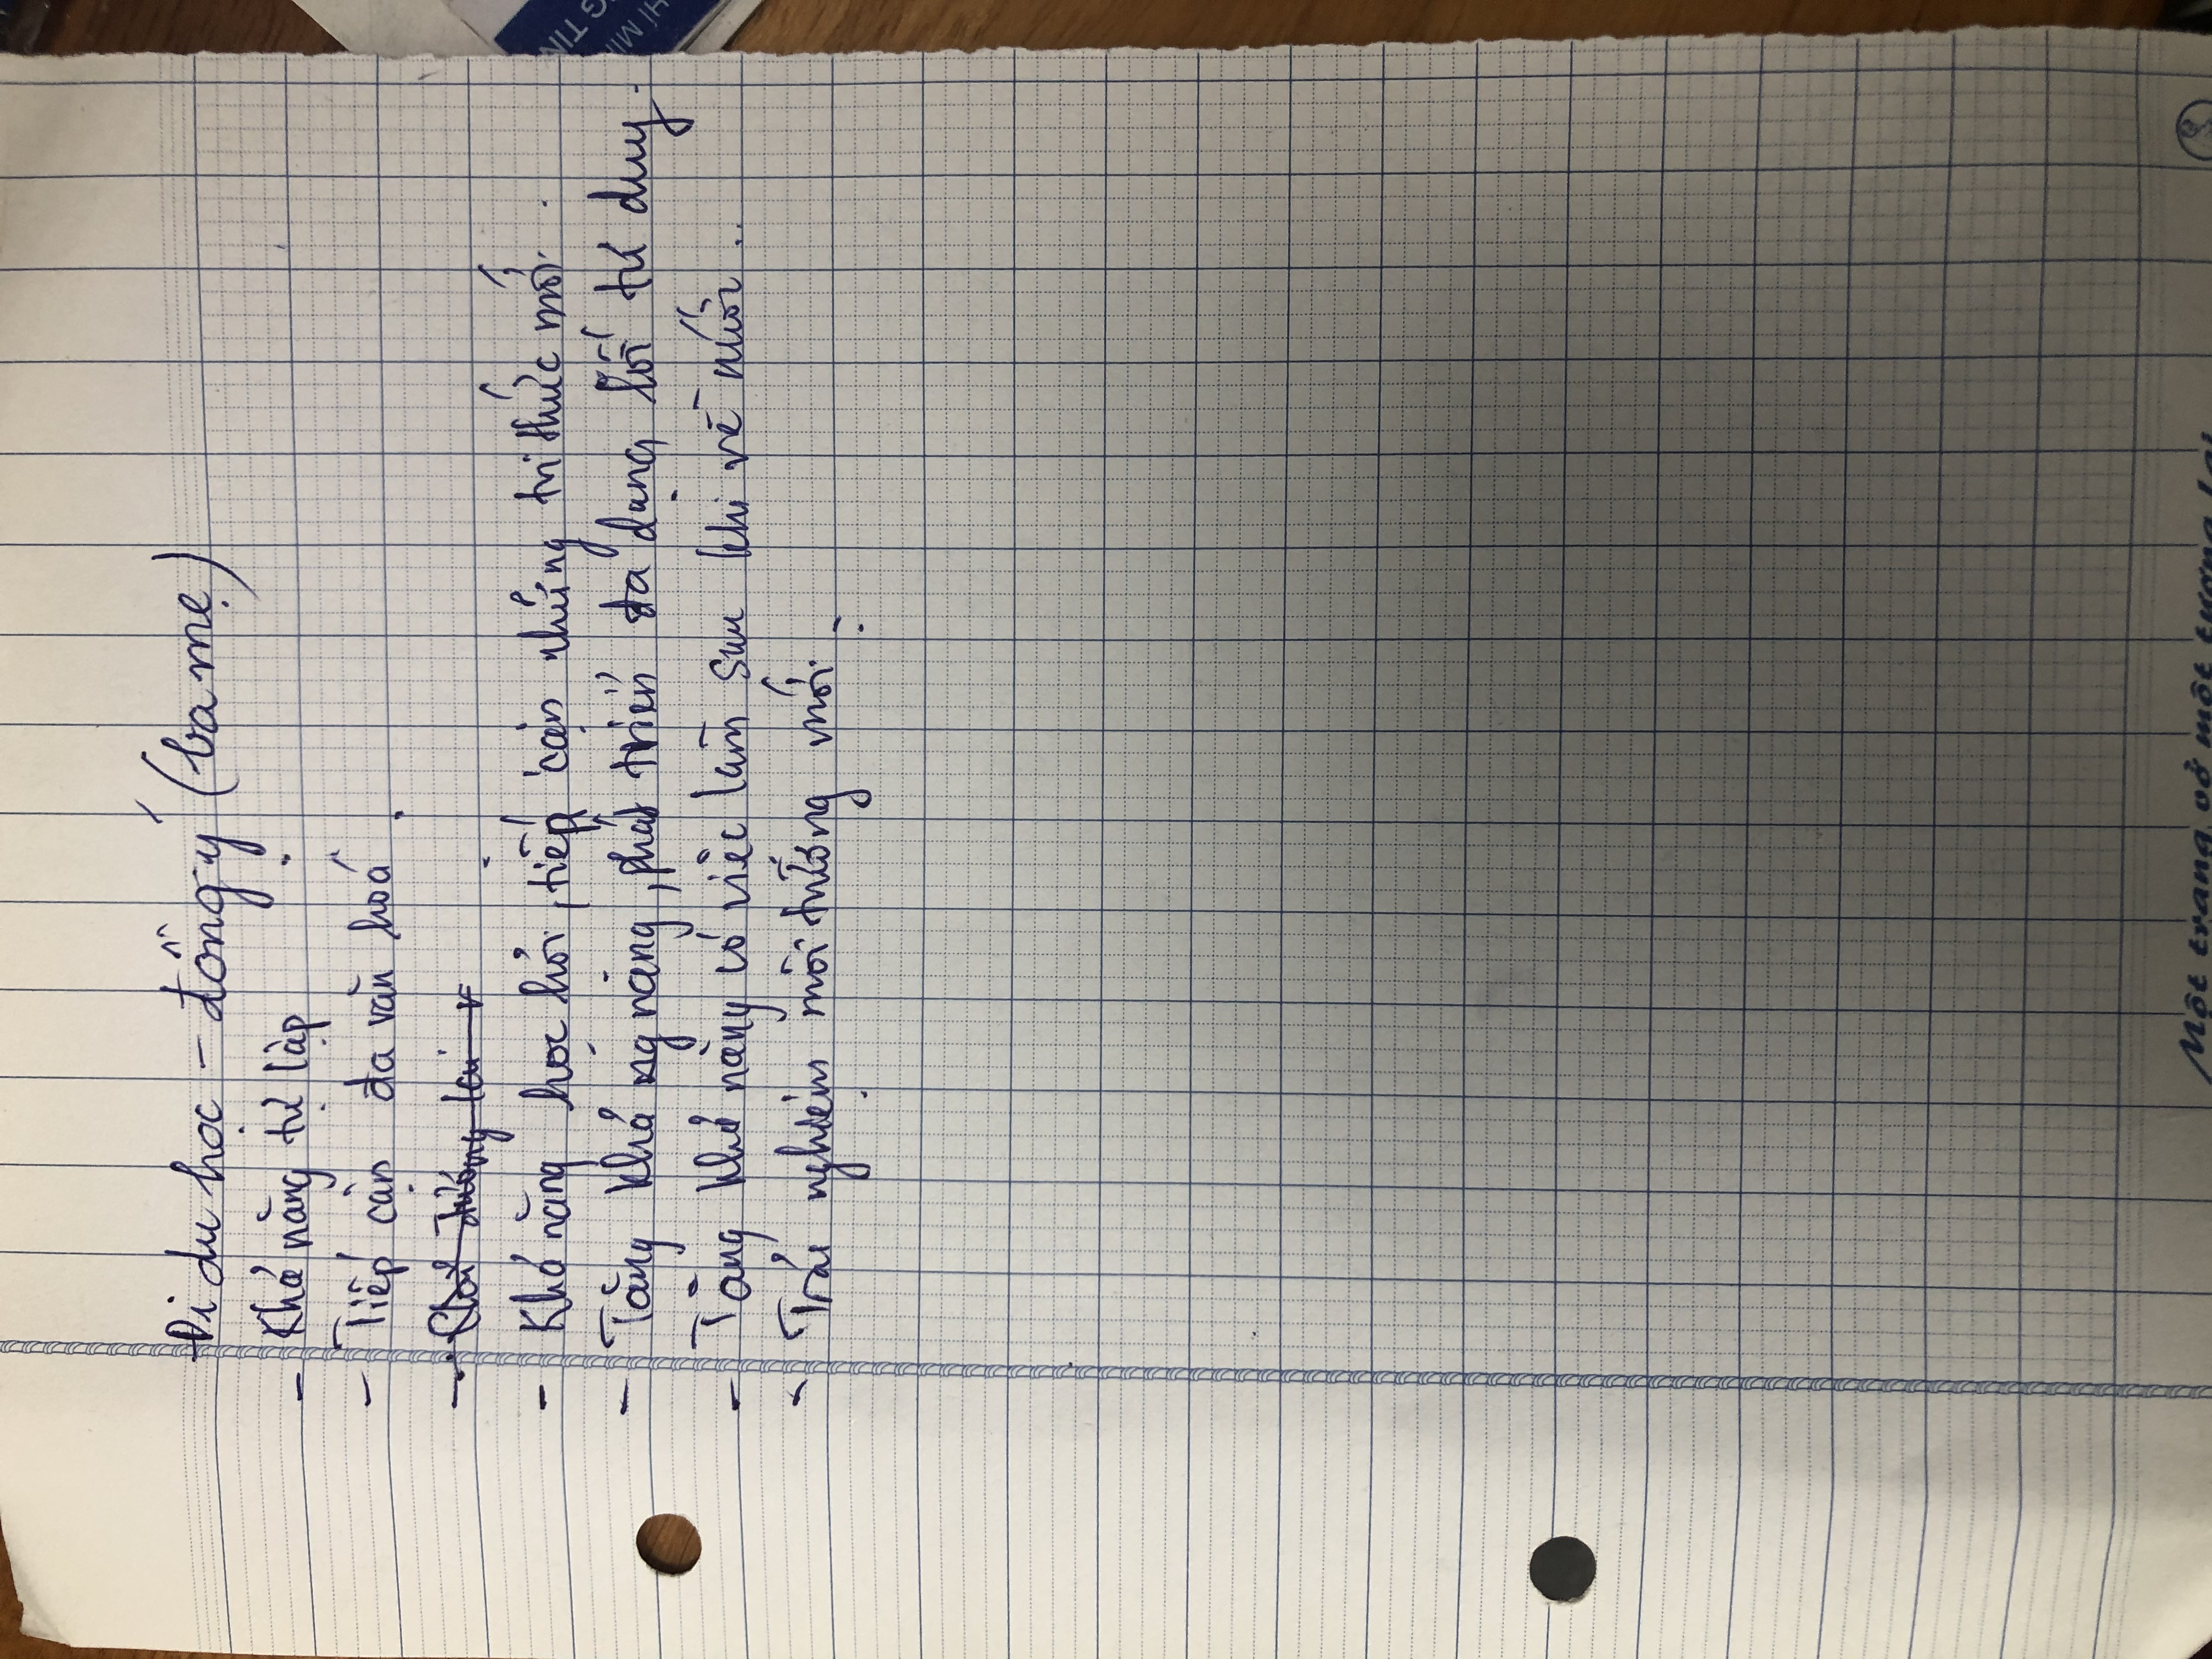 Đi du học - đồng ý (ba mẹ)
- Khả năng tự lập
- Tiếp cận đa văn hoá.
- tương lai
- Khả năng học hỏi, tiếp cận những tri thức mới.
- Tăng khả năng, phát triển đa dạng lối tư duy.
- Tăng khả năng có việc làm sau khi về nước..
- Trải nghiệm môi trường mới.
Một trang vở một tương lai